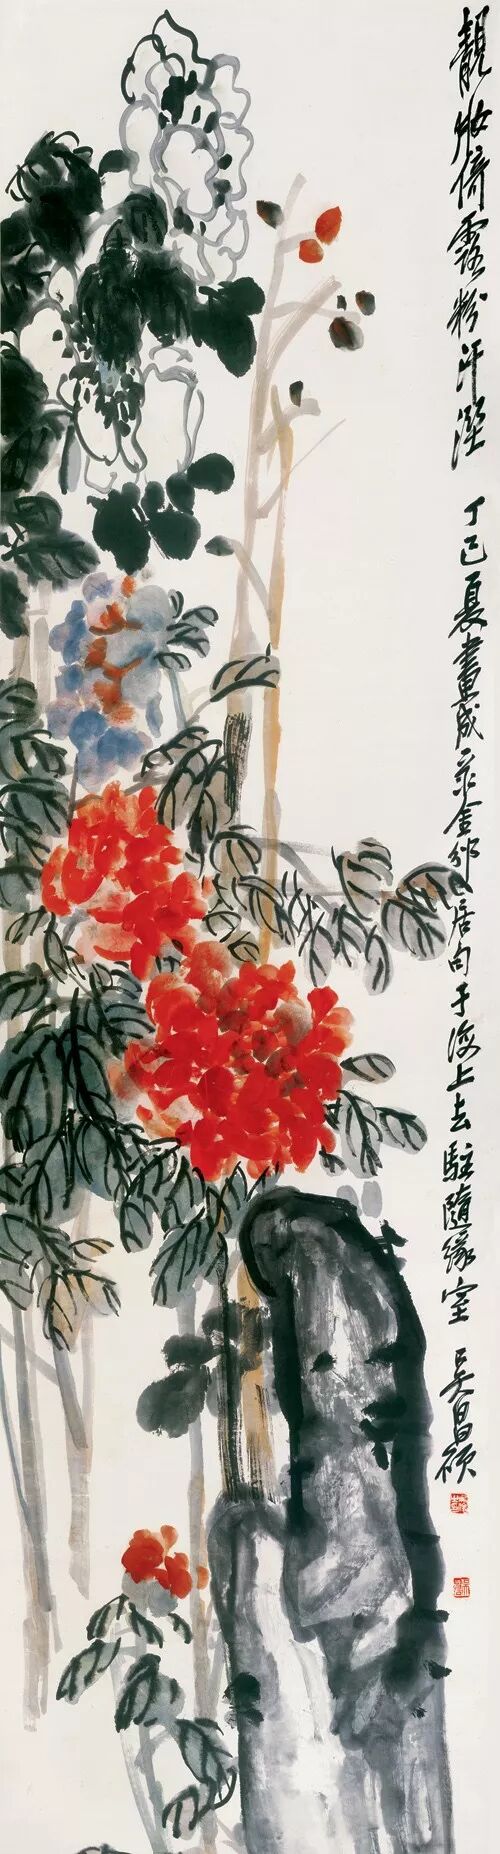 靚妝倚露粉汗溼 丁巳夏畫成录金邠居句于海上去駐隨緣室 吳昌碩